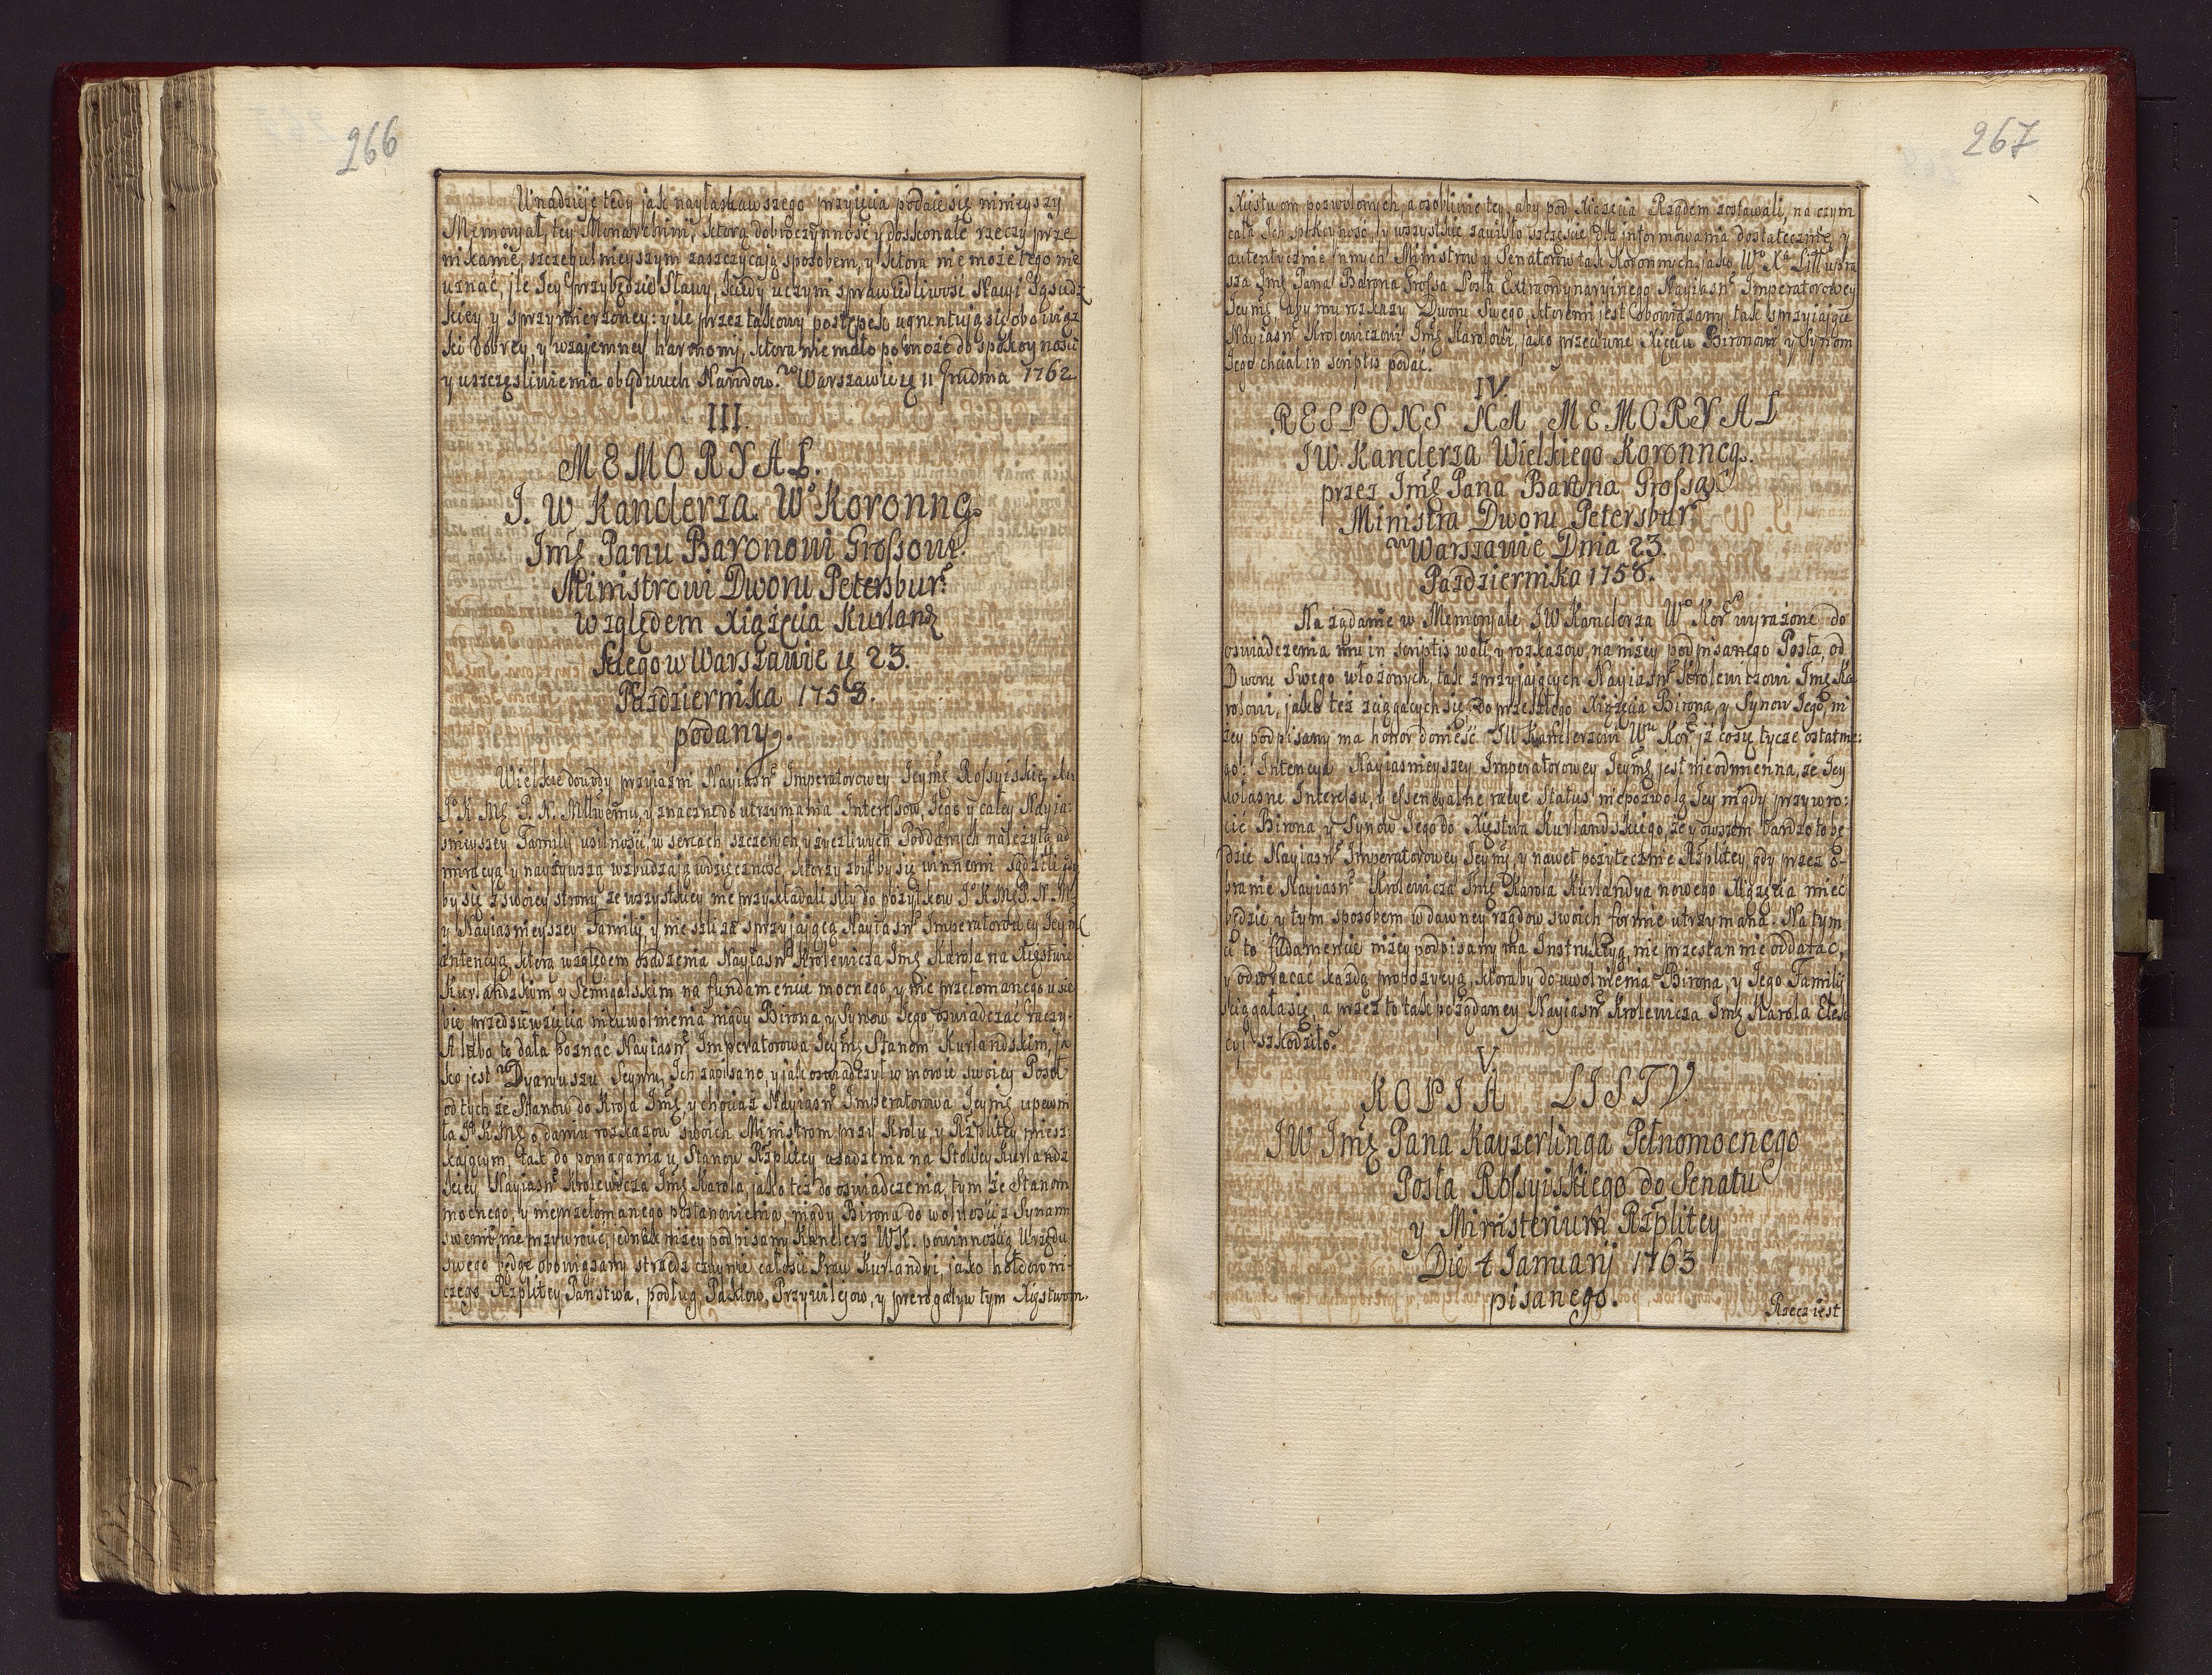 266
W nadzieję tedy jak nayłaskawszego przyięcia podaie się mnieyszy
Memoryał, tey Monarchini, ktorą dobroczynność y doskonałe rzeczy prze
nikanie, szczegulnieyszym zaszczycają sposobem, y ktora nie może tego nie
uznać, ile Jey przybędzie Sławy, kiedy uczyni sprawiedliwość Nacyi Sąsiedz
kiey y sprzymierzoney: y ile przez takowy postępek ugruntują się obowiąz
ki dobrey, y wzajemney harmonij, ktora nie mało pomoże do spokoyności
y uszczęśliwienia obydwuch Narodow. w Warszawie 11 Grudnia 1762
III.
MEMORYAŁ.
J. W Kanclerza Wo Koronng.
Jmę Panu Baronowi Grossowi.
Ministrowi Dworu Petersbur:
względem Xiążęcia Kurlanz
kiego w Warszawie 23.
Października 1758.
podany.
Wielkie dowody przyiaźni Nayiasn: Imperatorowey Jeymę Rossyiskiey ku
Jo K. Mę P. N. Młłwemu, y znaczne do utrzymania Interessow Jego y całey Nayia:
śnieyszey Familij usilności, w sercach szczerych y życzliwych Poddanych należytą ad
miracyą y nayżywszą wzbudzają wdzięczność, ktorzy zbyt by się winnemi sądzili gdy
by się z swoiey strony ze wszystkiey nie przykładali siły do pożytkow Jo K. Mę P. N. M
y Nayiasnieyszey Familij, y nie szli za sprzyjającą Nayiasn: Imperatorowey Jeymę
intencyą, ktorą względem osadzenia Nayiasn: Krolewicza Jmę Karola na Xięstwie
Kurlandzkim y Semigalskim na fundamencie mocnego, y nie przełomanego u sie
bie przedsięwzięcia nieuwolnienia nigdy Birona y Synow Jego, oswiadczać raczy.
A lubo to dała poznać Nayiasn: Imperatorowa Jeymę Stanom Kurlandskim, ja
ko jest w Dyaryuszu Seymu Ich zapisano, y jak oswiadczył w mowie swoiey Poseł
od tych że Stanow do Krola Jmę y chociaż Nayiasn: Imperatorowa Jeymę upewni
ła Jo K Mę o daniu rozkazow swoich Ministrom przy Krolu, y Rzplitey miesz
kającym, tak do pomagania u Stanow Rzplitey osadzenia na Stolicy Kurlandz
kiey Nayiasn: Krolewicza Jmę Karola, jako też do oswiadczenia, tym że Stanom
mocnego, y nieprzełomanego postanowienia, nigdy Birona do wolności z Synami
swemi nie przywrocić, jednak niżey podpisany Kanclerz WK. powinnością Urzędu
swego będąc obowiązany strzedz czuynie całości Praw Kurlandyi, jako hołdowni-
czego Rzplitey Państwa, podług Paktow, Przywilejow, y prerogatyw tym Xięstwom.
267
Xięstwom pozwolonych, a osobliwie tey, aby pod Xiążęcia Rządem zostawali, na czym
cała Ich spokoyność, y wszystkie zawisło szczęście, dla informowania dostatecznie, y
autentycznie innych Ministrow y Senatorow tak Koronnych, jako Wo Xa Litt: upra
sza Jmę Pana Barona Grossa Posła Extraordynaryinego Nayiasn: Imperatorowey
Jeymę, aby mu rozkazy Dworu Swego, ktoremi jest obowiązany tak sprzyjające
Nayiasn: Krolewiczowi Jmę Karolowi, jako przeciwne Xięciu Bironowi y Synom
Jego chciał in scriptis podać.
IV.
RESPONS NA MEMORYAŁ
JW. Kanclerza Wielkiego Koronneg.
przez Jmę Pana Barona Grossa
Ministra Dworu Petersbur:
w Warszawie Dnia 23.
Października 1758.
Na żądanie w Memoryale JW Kanclerza Wo Koro wyrażone do
oswiadczenia mu in scriptis woli, y rozkazow, na niżey podpisanego Posła, od
Dworu Swego włożonych, tak sprzyjających Nayiasn: Krolewiczowi Jmę Ka
rolowi, jako też sciągających się do przeszłego Xiążęcia Birona, y Synow Jego, ni
żey podpisany ma honor donieść JW Kanclerzowi Wu Kor: iż co się tycze ostatnie:
go: Intencya Nayiasnieyszey Imperatorowey Jeymę jest nieodmienna, że Jey
własne Interessa, y essencyalne racye Status niepozwolą Jey nigdy przywro:
cić Birona, y Synow Jego do Xięstwa Kurlandskiego, że y owszem bardzo to bę
dzie Nayiasn: Imperatorowey Jeymę, y nawet pożytecznie Rzplitey, gdy przez o-
branie Nayiasn: Krolewicza Jmę Karola Kurlandya nowego Xiążęcia mieć
będzie, y tym sposobem w dawney rządow swoich formie utrzymana. Na tym
ci to fundamencie niżey podpisany ma Instrukcyą, nie przestannie oddalać,
y odwracać każdą propozycyą, ktoraby do uwolnienia Birona, y Jego Familij
sciągała się, a przez to tak pożądaney Nayiasn: Krolewicza Jmę Karola Elek
cyi szkodziło.
V.
KOPIA LISTU
JW Jmę Pana Kayzerlinga Pełnomocnego
Posła Rossyiskiego do Senatu
y Ministerium Rzplitey
Die 4 Januarij 1763
pisanego.
Rzecz iest